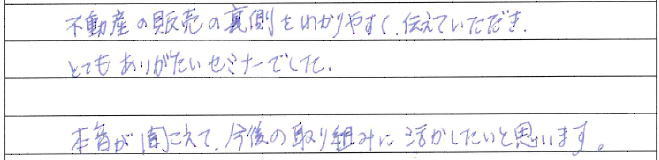 不動産の販売の裏側をわかりやすく、伝えていただき、
とてもありがたいセミナーでした。
本音が聞こえて、今後の取り組みに活かしたいと思います。